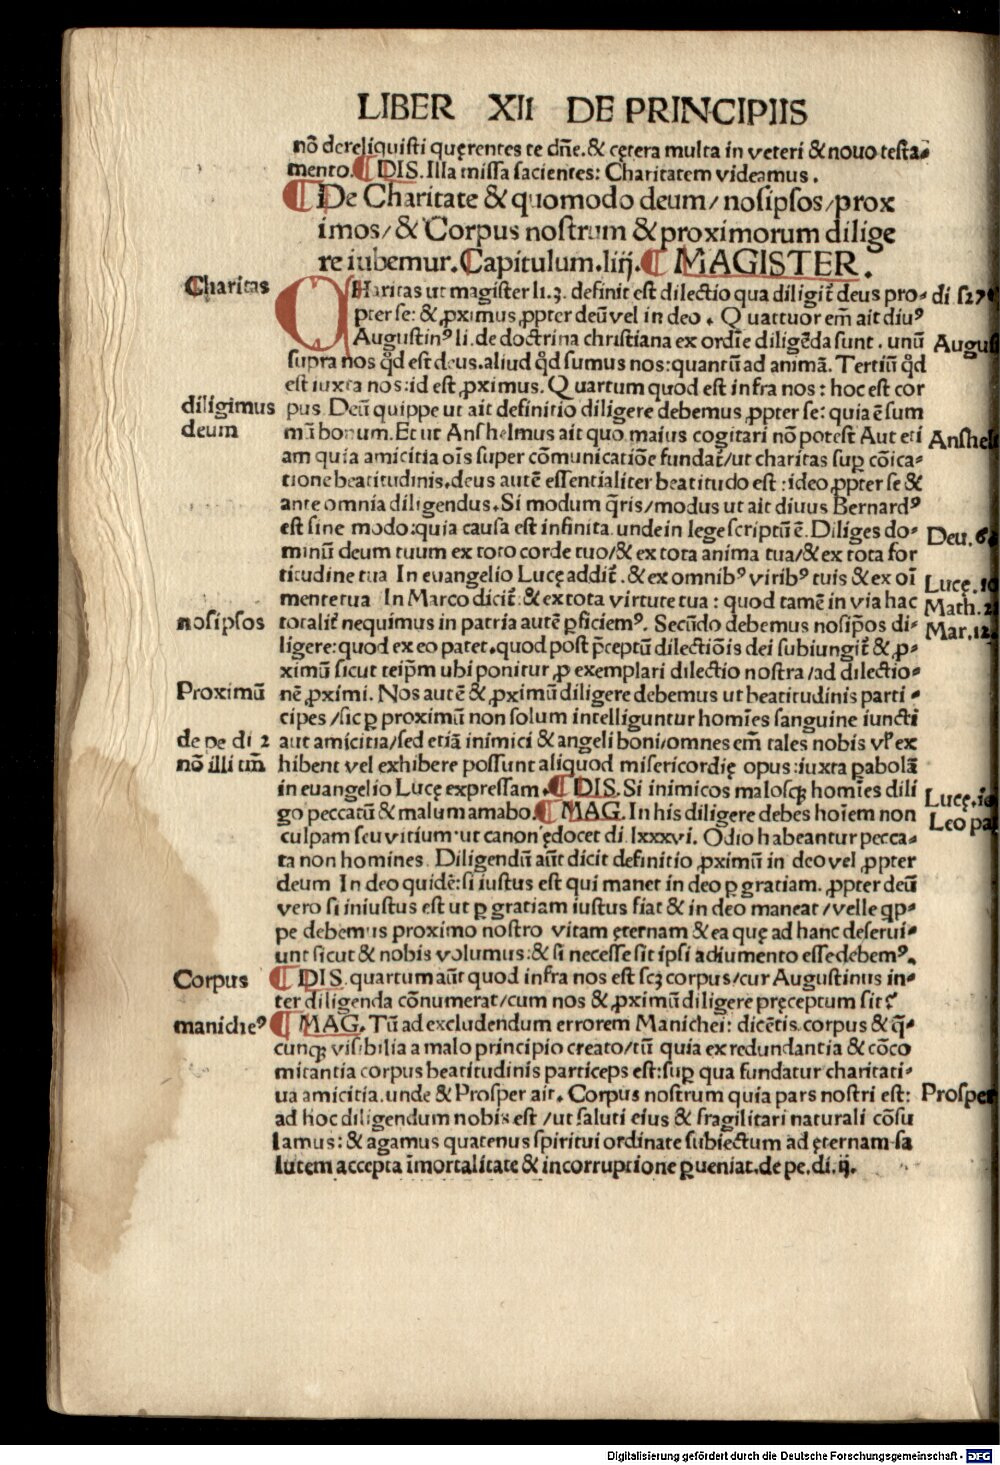 LIBER XII DE PRINCIPIIS
nō dereliquisti quęrentes te dn̄e.& cętera multa in veteri & nouo testa-
mento.¶ DIS. Illa missa facientes: Charitatem videamus.
¶ De Charitate & quomodo deum/ nosipsos/prox
imos/ & Corpus nostrum & proximorum dilige
re iubemur. Capitulum.liij.¶ MAGISTER.
Charitas
CHaritas ut magister li.3. definit est dilectio qua diligit̄ deus pro-
di 27
pter se: & ꝓximus ꝓpter deū vel in deo. Quattuor em̄ ait diuꝰ
Augustinꝰ li.de doctrina christiana ex ordīe diligēda sunt. unū
Augus
supra nos qd̄ est deus.aliud qd̄ sumus nos:quantū ad animā. Tertiū qd̄
est iuxta nos:id est ꝓximus. Quartum quod est infra nos: hoc est cor
diligimus
pus. Deū quippe ut ait definitio diligere debemus ꝓpter se: quia ē sum
deum
mū bonum.Et ut Anshelmus ait quo maius cogitari nō potest Aut eti
Anshel
am quia amicitia oīs super cōmunicatiōe fundat̄/ut charitas suꝑ cōica-
tione beatitudinis.deus autē essentialiter beatitudo est:ideo ꝓpter se &
ante omnia diligendus.Si modum q̄ris/modus ut ait diuus Bernardꝰ
est sine modo:quia causa est infinita.unde in lege scriptū ē.Diliges do-
Deu.6
minū deum tuum ex toto corde tuo/& ex tota anima tua/& ex tota for
titudine tua In euangelio Lucę addit̄.& ex omnibꝰ viribꝰ tuis & ex oī
Lucę.10
mente tua In Marco dicit̄ & ex tota virtute tua: quod tamē in via hac
Math.2
nosipsos
totalit̄ nequimus in patria autē ꝑficiemꝰ. Secūdo debemus nosip̄os di-
Mar.12
ligere:quod ex eo patet.quod post p̄ceptū dilectiōis dei subiungit̄ & ꝓ-
ximū sicut teip̄m ubi ponitur ꝓ exemplari dilectio nostra/ad dilectio-
Proximū
nē ꝓximi. Nos autē & ꝓximū diligere debemus ut beatitudinis parti-
cipes/sic ꝑ proximū non solum intelliguntur homīes sanguine iuncti
de pe di 2
aut amicitia/sed etiā inimici & angeli boni/omnes em̄ tales nobis vl̄ ex
nō illi tm̄
hibent vel exhibere possunt aliquod misericordię opus:iuxta ꝑabolā
in euangelio Lucę expressam.¶ DIS. Si inimicos malosqꝫ homīes dili
Lucę.10
go peccatū & malum amabo.¶ MAG. In his diligere debes hoīem non
Leo pa
culpam seu vitium ut canon ędocet di lxxxvi. Odio habeantur pecca-
ta non homines. Diligendū aūt dicit definitio ꝓximū in deo vel ꝓpter
deum In deo quidē:si iustus est qui manet in deo ꝑ gratiam. ꝓpter deū
vero si iniustus est ut ꝑ gratiam iustus fiat & in deo maneat/velle qꝑ-
pe debemus proximo nostro vitam ęternam & ea quę ad hanc deserui-
unt sicut & nobis volumus:& si necesse sit ipsi adiumento esse debemꝰ.
Corpus
¶ DIS. quartum aūt quod infra nos est scꝫ corpus/cur Augustinus in-
ter diligenda cōnumerat/cum nos & ꝓximū diligere pręceptum sit?
manicheꝰ
¶ MAG. Tū ad excludendum errorem Manichei: dicētis corpus & q̄-
cunqꝫ visibilia a malo principio creato/tū quia ex redundantia & cōco
mitantia corpus beatitudinis particeps est:suꝑ qua fundatur charitati-
ua amicitia.unde & Prosper ait. Corpus nostrum quia pars nostri est:
Prosper
ad hoc diligendum nobis est /ut saluti eius & fragilitati naturali cōsu
lamus: & agamus quatenus spiritui ordinate subiectum ad ęternam sa
lutem accepta īmortalitate & incorruptione ꝑueniat.de pe.di.ij.
Digitalisierung gefördert durch die Deutsche Forschungsgemeinschaft - DFG